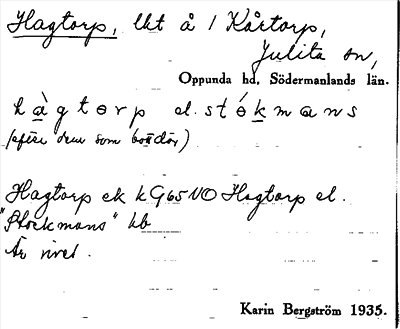 Hagtorp, lht å 1 Kårtorp,
Julita sn,
Oppunda hd, Södermanlands län.
hàgtorp el. stókmans
(efter dem som bodde där)
Hagtorp ek kG65NO Hagtorp el.
"Stockmans" hb
Är rivet.
Karin Bergström 1935.